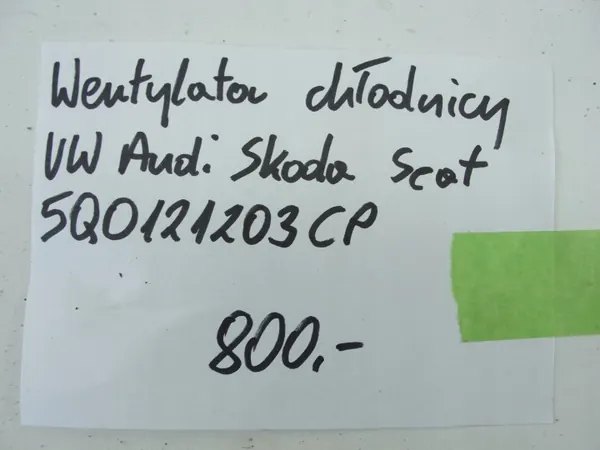 Wentylator chłodnicy
VW Audi Skoda Seat
5Q0121203CP
800,-